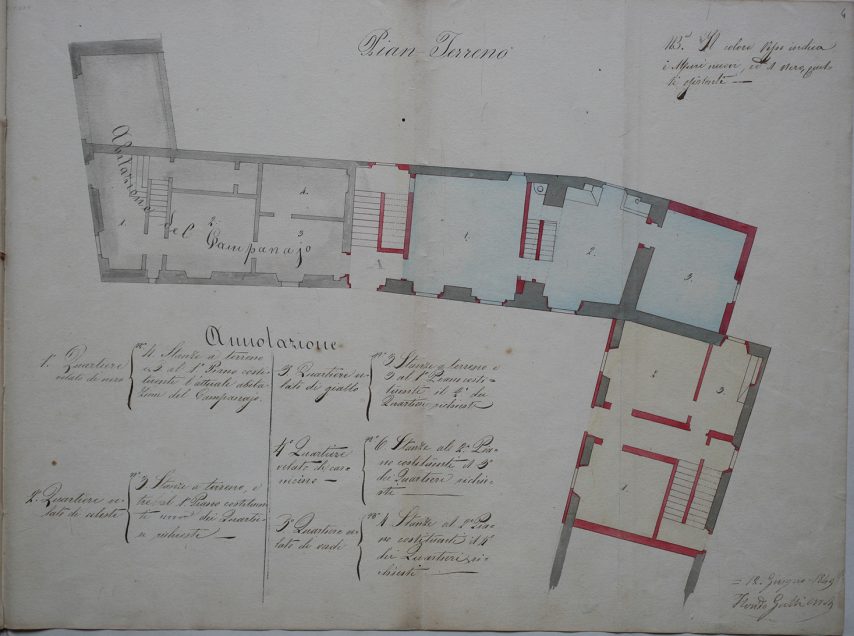 Pian Terreno
NB. Il colore indica
i Muri nuovi, ed il nero, quel
li esistenti —
Abitazione del Campanajo
1.
2.
3
4.
1
1.
2.
3.
2
3.
1
Annotazione
1° Quartiere
velato di nero
n° 4 Stanze a terreno
e 3 al 1° Piano costi-
tuente l'attuale abita-
zione del Campanajo.
2° Quartiere ve-
lato di celeste
n° 3 Stanze a terreno, e
tre al 1° Piano costituen-
te uno dei Quartie-
ri richiesti —
3° Quartiere ve-
lato di giallo
n° 3 Stanze a terreno e
3 al 1° Piano costi-
tuente il 2° dei
Quartieri richiesti
4° Quartiere
velato di car-
mino —
n° 6 Stanze al 2° Pia-
no costituente il 3°
dei Quartieri richie-
sti —
5° Quartiere ve-
lato di verde
n° 4 Stanze al 2° Pia-
no costituente il 4°
dei Quartieri ri-
chiesti —
= 12. Giugno 1849